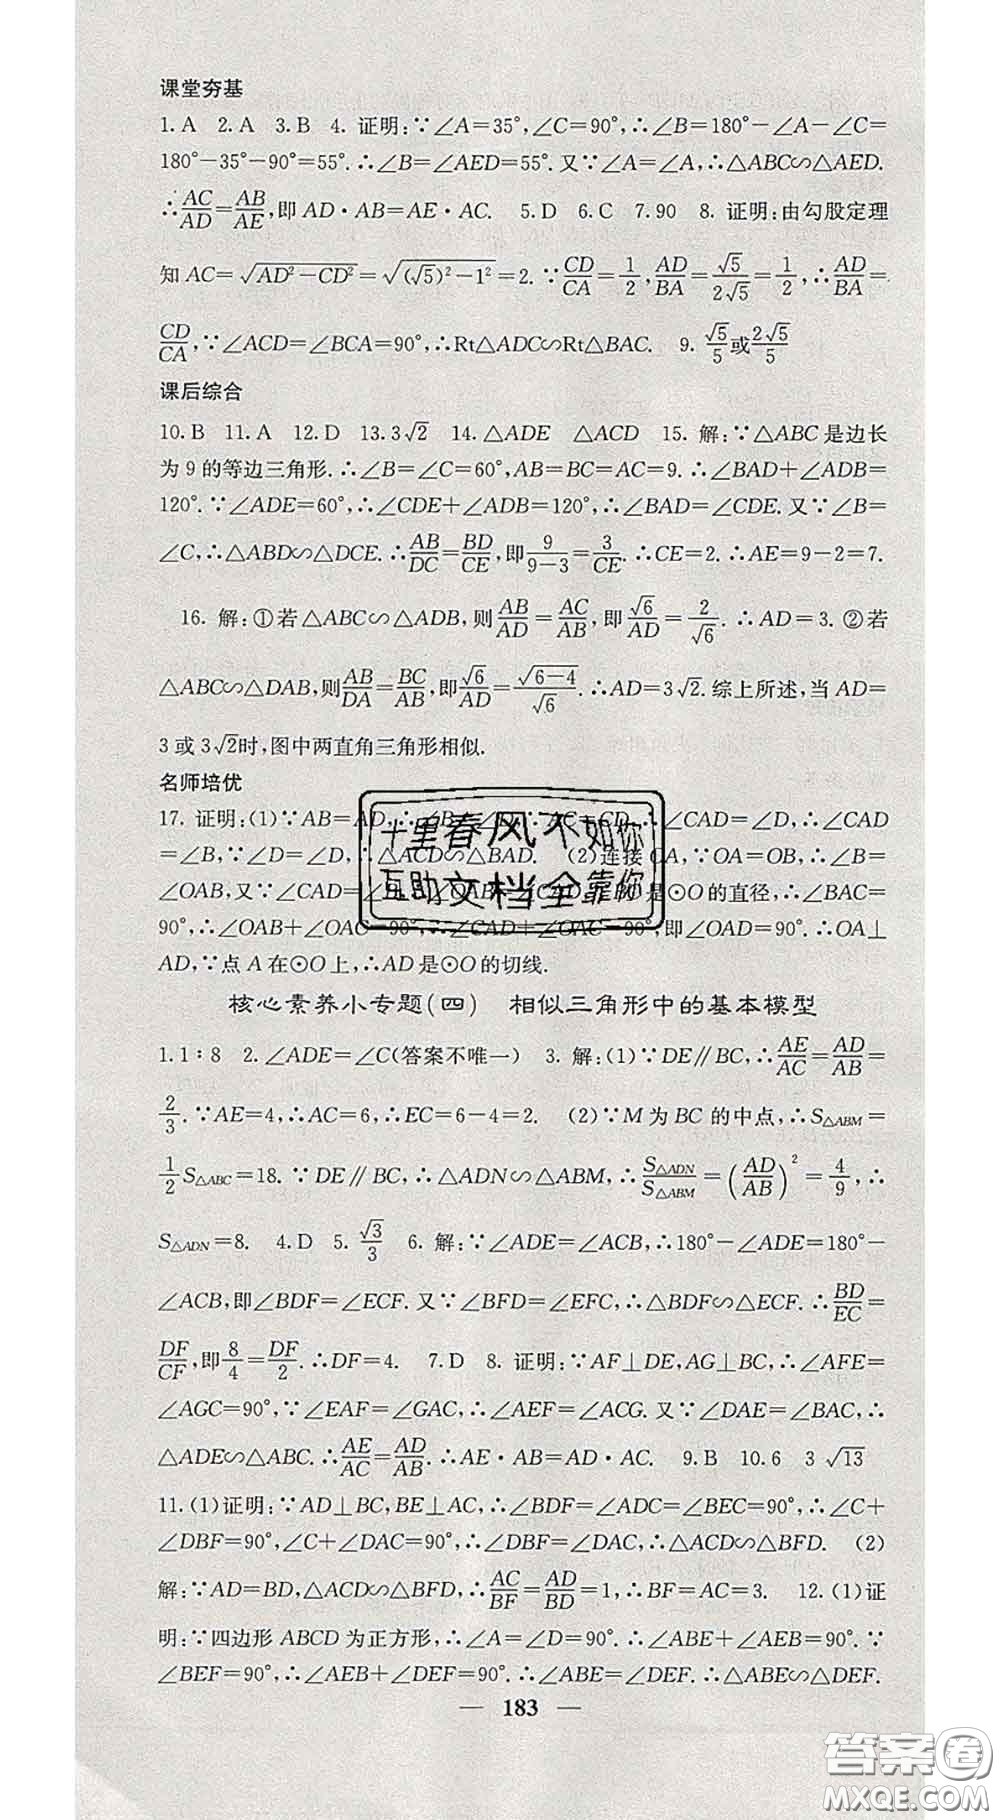 课堂夯基
1. A 2. A 3. B 4. 证明:∵∠A=35°,∠C=90°,∴∠B=180°-∠A-∠C=
180°-35°-90°=55°.∴∠B=∠AED=55°.又∵∠A=∠A,∴△ABC∽△AED.
∴AC/AD=AB/AE,即 AD·AB=AE·AC. 5. D 6. C 7. 90 8. 证明:由勾股定理
知 AC=√(AD²-CD²)=√((√5)²-1²)=2.∵CD/CA=1/2,AD/BA=√5/2√5=1/2,∴AD/BA=
CD/CA,∵∠ACD=∠BCA=90°,∴Rt△ADC∽Rt△BAC. 9. √5/5或2√5/5
课后综合
10. B 11. A 12. D 13. 3√2 14. △ADE △ACD 15. 解:∵△ABC 是边长
为 9 的等边三角形.∴∠B=∠C=60°,AB=BC=AC=9.∴∠BAD+∠ADB=
120°.∵∠ADE=60°,∴∠CDE+∠ADB=120°,∴∠BAD=∠CDE.又∵∠B=
∠C,∴△ABD∽△DCE.∴AB/DC=BD/CE,即9/(9-3)=3/CE.∴CE=2.∴AE=9-2=7.
16. 解:①若△ABC∽△ADB,则AB/AD=AC/AB,即√6/AD=2/√6.∴AD=3.②若
△ABC∽△DAB,则AB/DA=BC/AB,即√6/AD=√(6-4)/√6.∴AD=3√2.综上所述,当 AD=
3 或 3√2时,图中两直角三角形相似.
名师培优
17. 证明:(1)∵AB=AD,∴∠B=∠D,∵AC=CD,∴∠CAD=∠D,∴∠CAD
=∠B,∵∠D=∠D,∴△ACD∽△BAD. (2)连接 OA,∵OA=OB,∴∠B=
∠OAB,又∵∠CAD=∠B,∴∠OAB=∠CAD,∵BC是⊙O的直径,∴∠BAC=
90°,∴∠OAB+∠OAC=90°,∴∠CAD+∠OAC=90°,即∠OAD=90°.∴OA⊥
AD,∵点 A 在⊙O 上,∴AD 是⊙O 的切线.
十里春风不如你
互助文档全靠你
核心素养小专题(四) 相似三角形中的基本模型
1. 1∶8 2. ∠ADE=∠C(答案不唯一) 3. 解:(1)∵DE∥BC,∴AE/AC=AD/AB=
2/3.∵AE=4,∴AC=6,∴EC=6-4=2. (2)∵M 为 BC 的中点,∴S△ABM=
1/2S△ABC=18.∵DE∥BC,∴△ADN∽△ABM,∴S△ADN/S△ABM=(AD/AB)²=4/9,∴
S△ADN=8. 4. D 5. √3/3 6. 解:∵∠ADE=∠ACB,∴180°-∠ADE=180°-
∠ACB,即∠BDF=∠ECF.又∵∠BFD=∠EFC,∴△BDF∽△ECF.∴BD/EC=
DF/CF,即8/4=DF/2.∴DF=4. 7. D 8. 证明:∵AF⊥DE,AG⊥BC,∴∠AFE=
∠AGC=90°,∵∠EAF=∠GAC,∴∠AEF=∠ACG.又∵∠DAE=∠BAC,∴
△ADE∽△ABC.∴AE/AC=AD/AB.∴AE·AB=AD·AC. 9. B 10. 6 3 √13
11. (1)证明:∵AD⊥BC,BE⊥AC,∴∠BDF=∠ADC=∠BEC=90°,∴∠C+
∠DBF=90°,∠C+∠DAC=90°,∴∠DBF=∠DAC,∴△ACD∽△BFD. (2)
解:∵AD=BD,△ACD∽△BFD,∴AC/BF=AD/BD=1,∴BF=AC=3. 12. (1)证
明:∵四边形 ABCD 为正方形,∴∠A=∠D=90°.∴∠ABE+∠AEB=90°.∵
∠BEF=90°,∴∠AEB+∠DEF=90°.∴∠ABE=∠DEF.∴△ABE∽△DEF.
— 183 —
答案圈
MXQE.COM